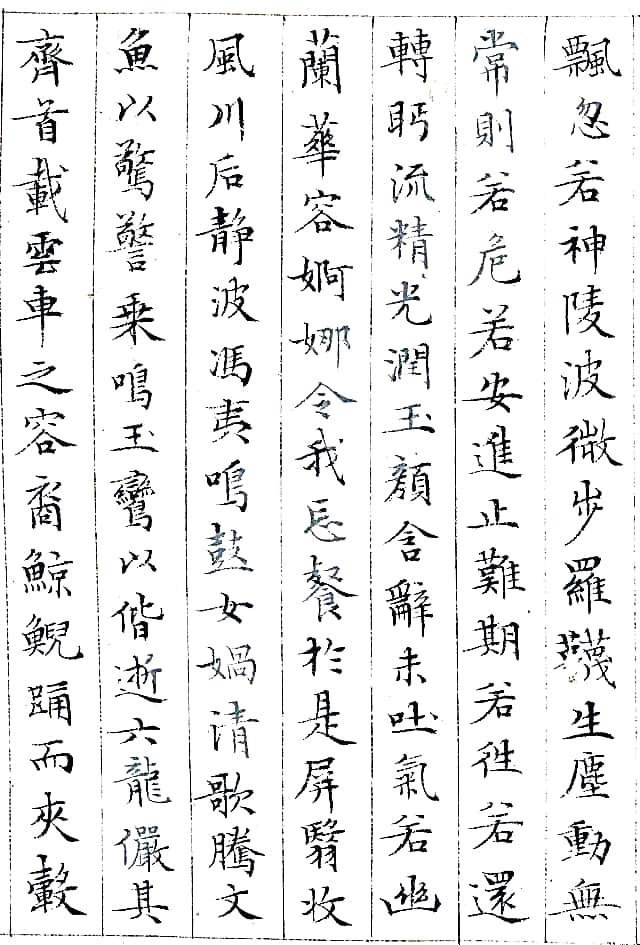 飄忽若神陵波微步羅襪生塵動無
常則若危若安進止難期若往若還
轉眄流精光潤玉顏含辭未吐氣若幽
蘭華容婀娜令我忘餐於是屏翳收
風川后静波馮夷鳴鼓女媧清歌騰文
魚以驚警乘鳴玉鸞以偕逝六龍儼其
齊首載雲車之容裔鯨鯢踊而夾轂